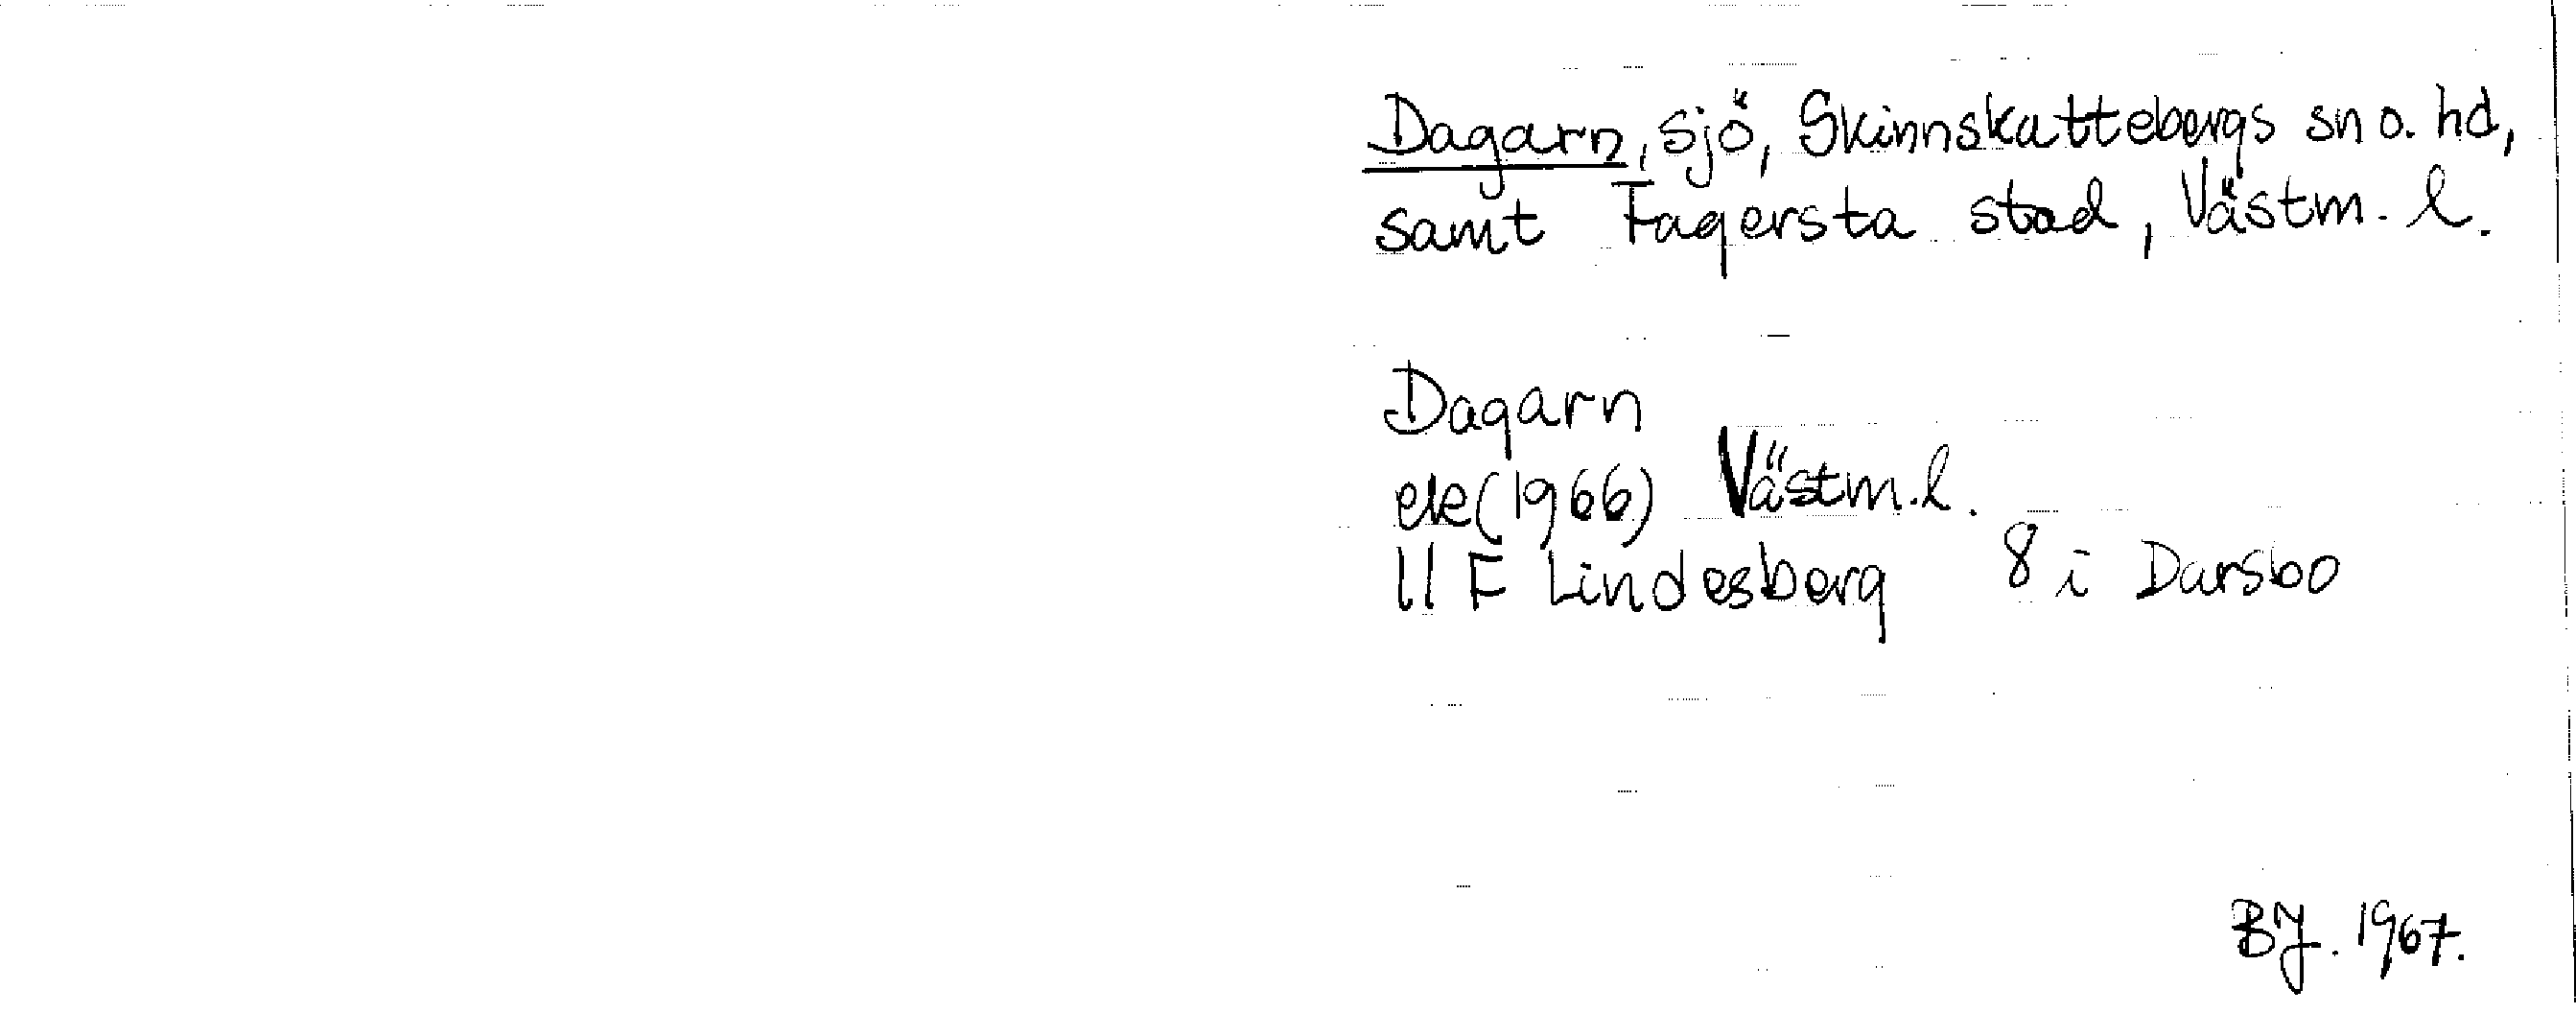 Dagarn, sjö, Skinnskattebergs sn o. hd,
samt Fagersta stad, Västm. l.
Dagarn
ek(1966) Västm.l.
11 F Lindesberg 8 i Darsbo
BJ. 1967.